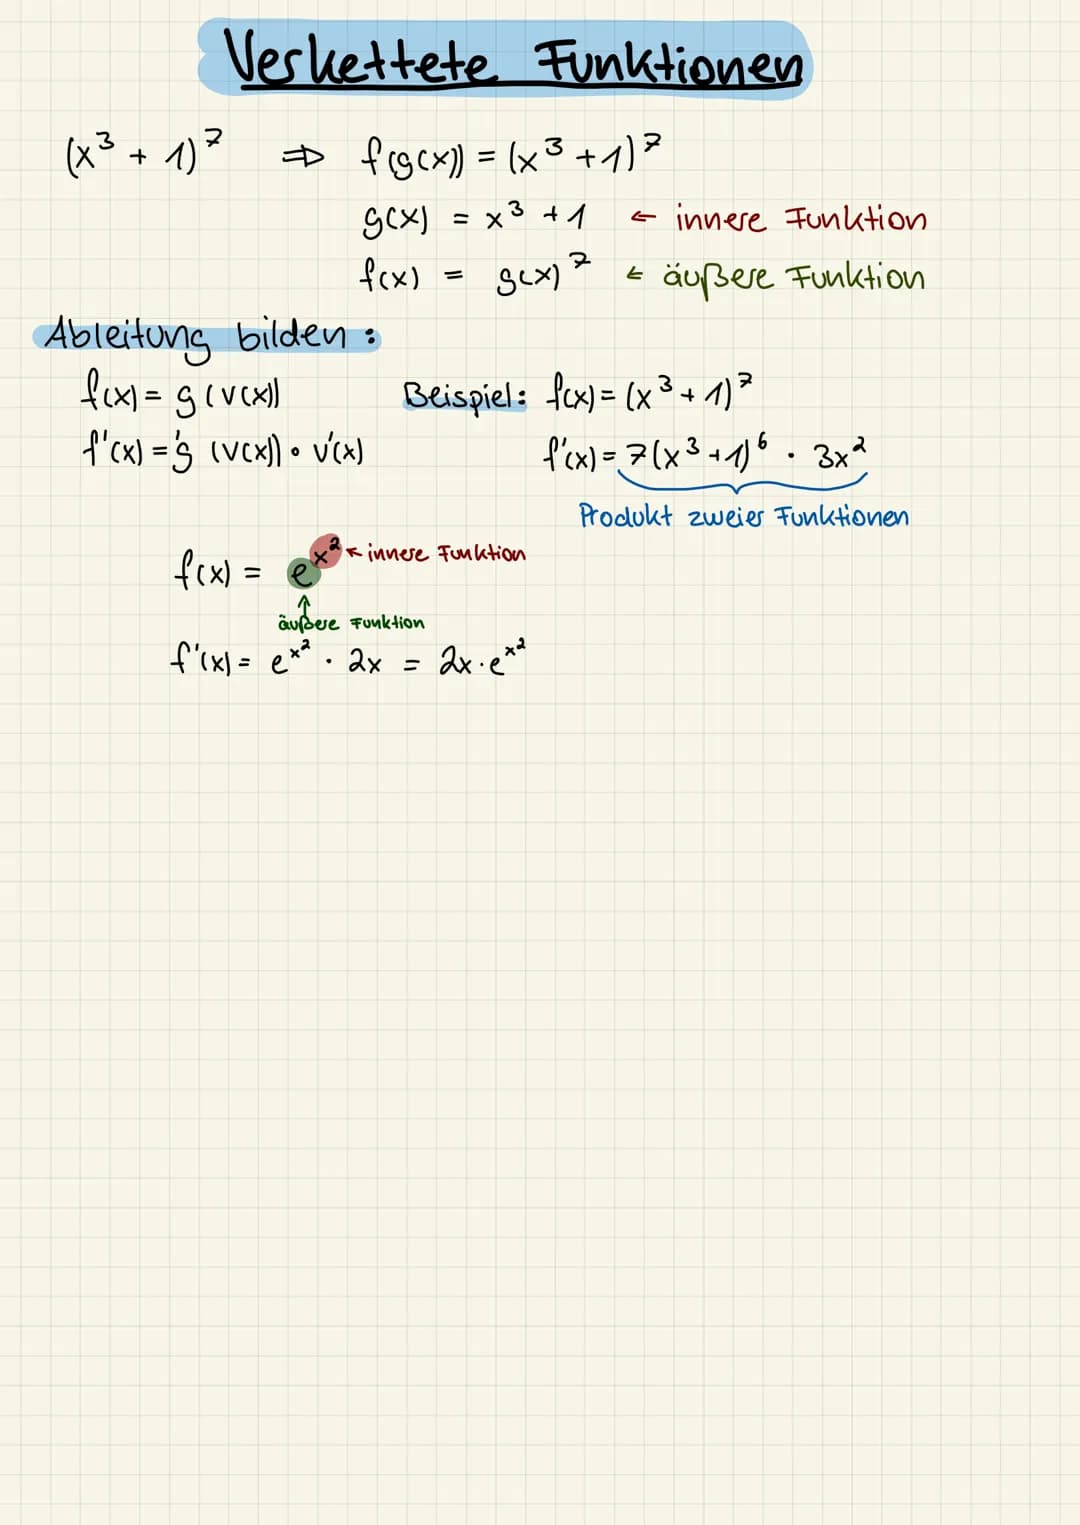 Verkettete Funktionen
(x³ + 1)⁷ ⇒ f(g(x)) = (x³ + 1)⁷
g(x) = x³ + 1 ← innere Funktion
f(x) = g(x)⁷ ← äußere Funktion
Ableitung bilden:
f(x) = g(v(x)) Beispiel: f(x) = (x³ + 1)⁷
f'(x) = g'(v(x)) • v'(x) f'(x) = 7(x³ + 1)⁶ · 3x²
Produkt zweier Funktionen
f(x) = e^x² ← innere Funktion
↑
äußere Funktion
f'(x) = e^x² · 2x = 2x · e^x²